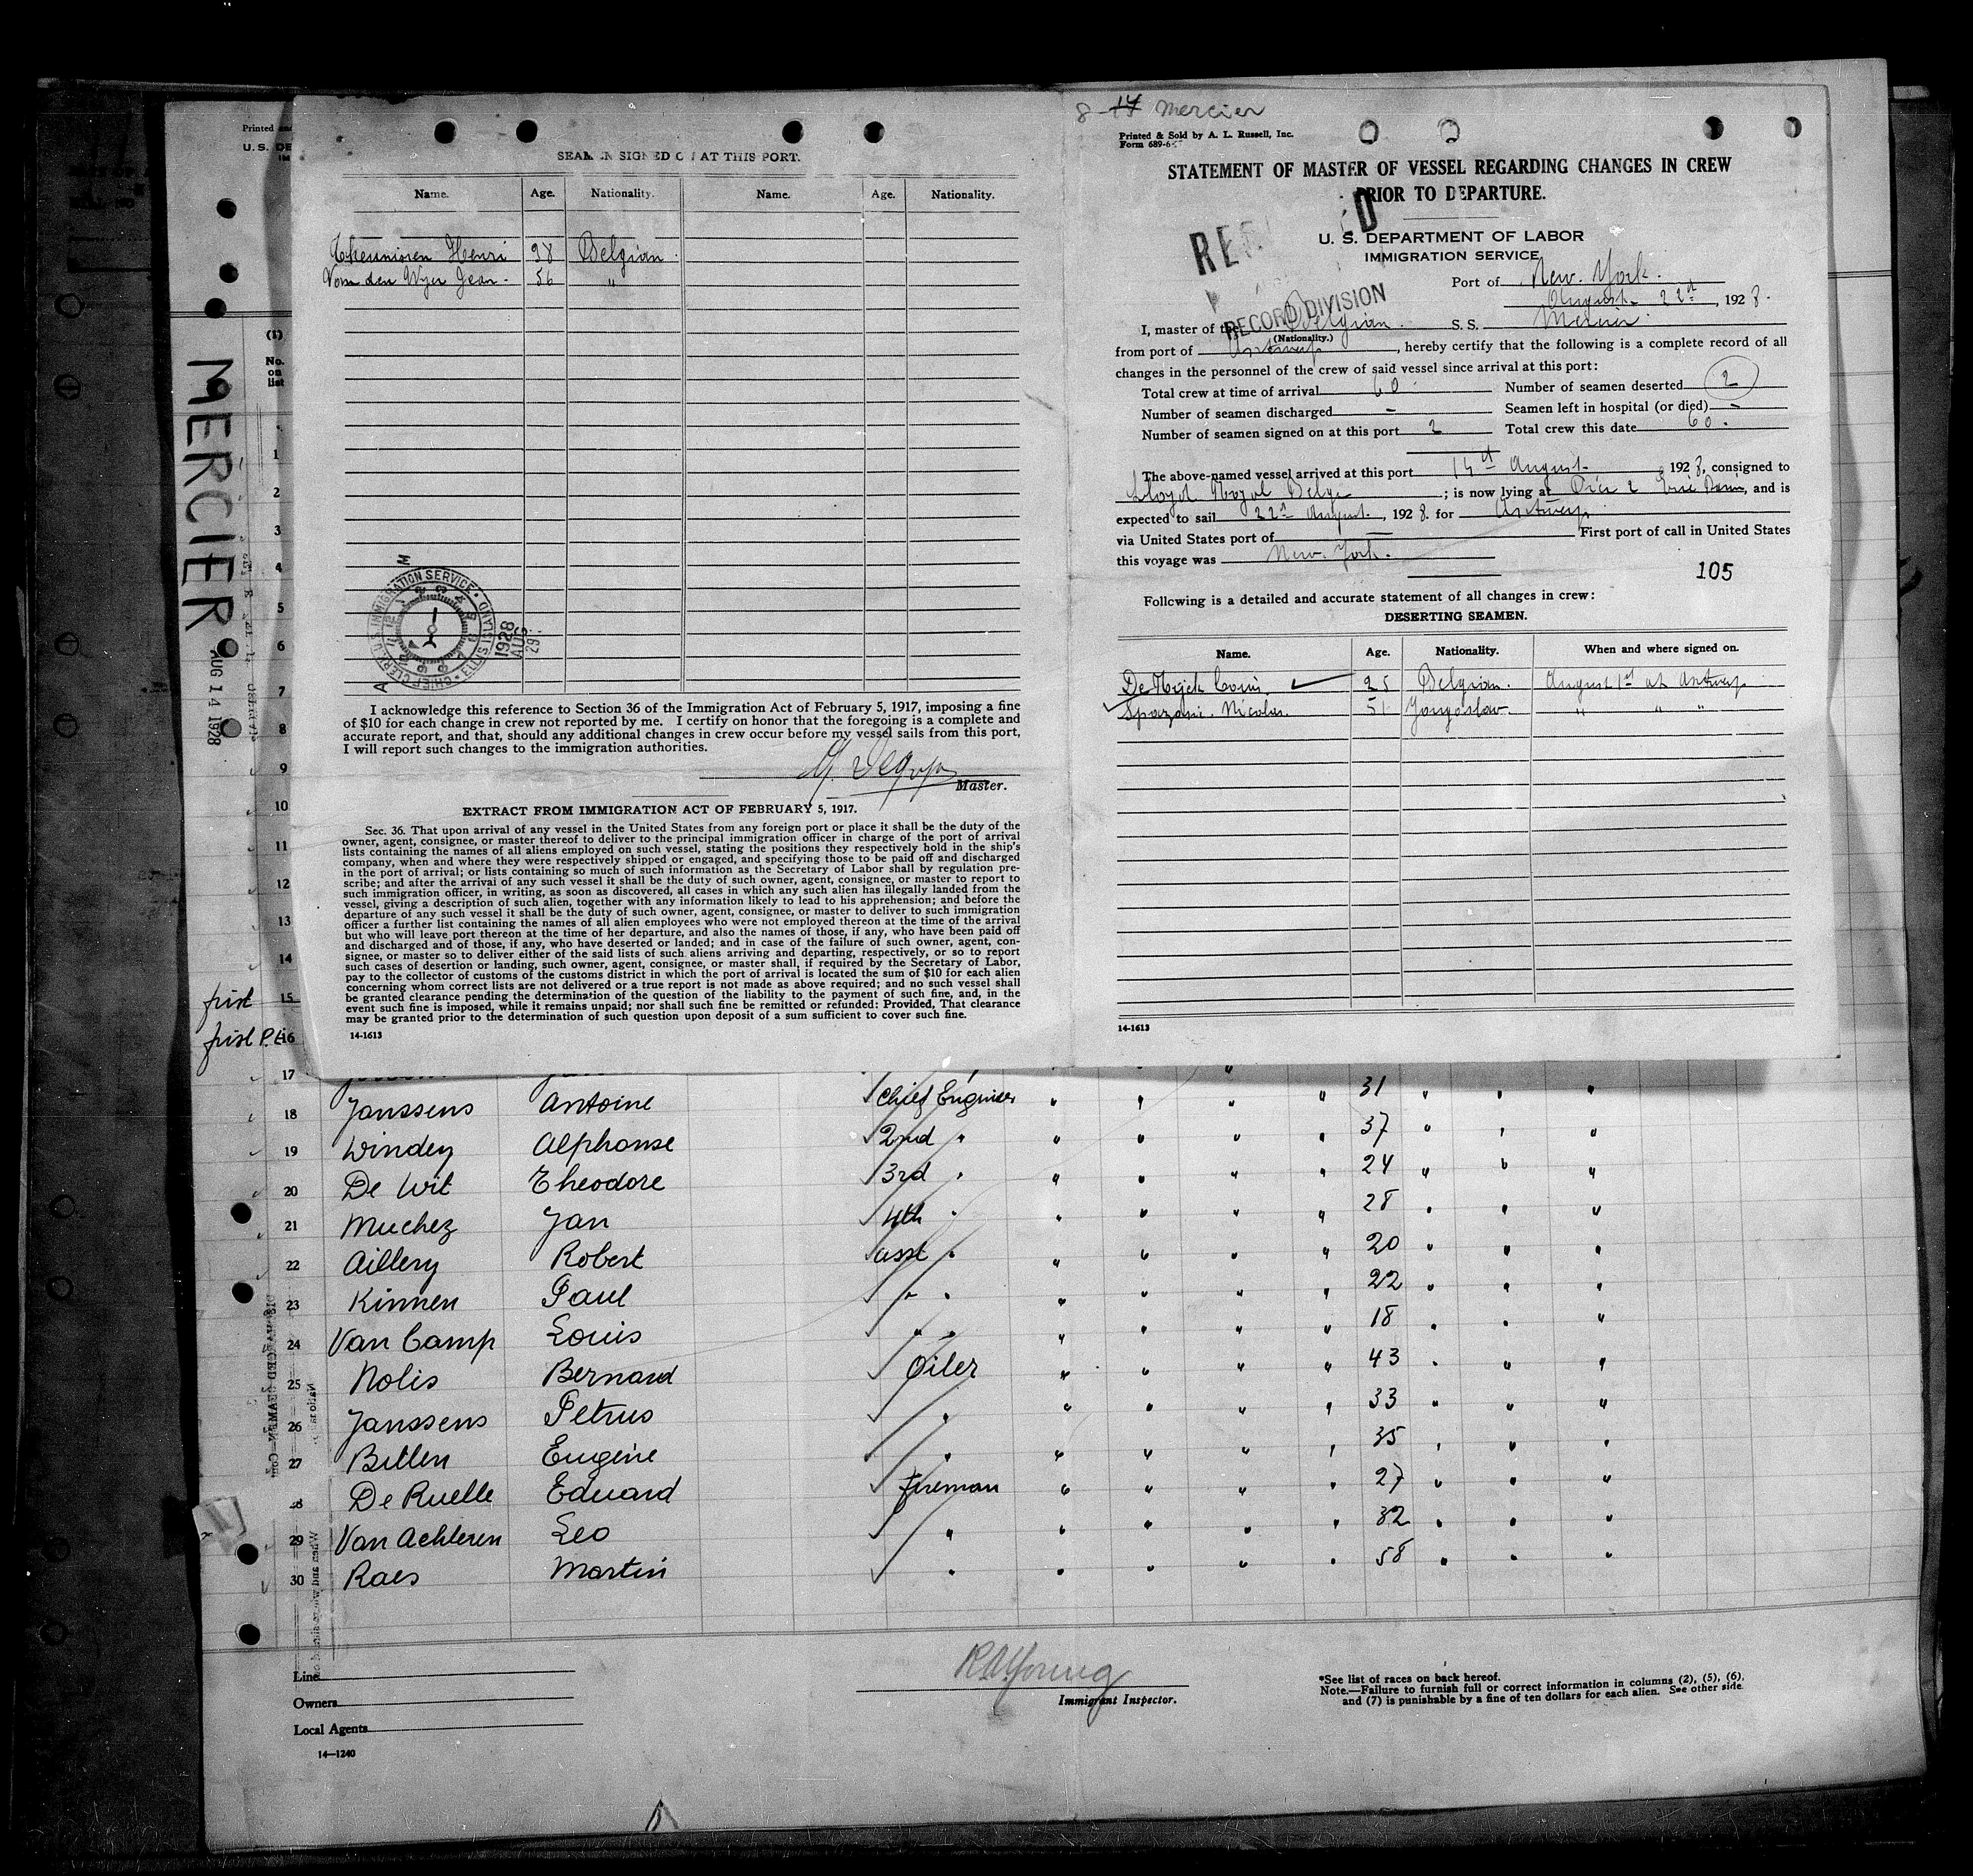 8-14 Mercier
Printed & Sold by A. L. Russell, Inc.
Form 689-6
STATEMENT OF MASTER OF VESSEL REGARDING CHANGES IN CREW
PRIOR TO DEPARTURE.
U. S. DEPARTMENT OF LABOR
IMMIGRATION SERVICE
RECORD DIVISION
Port of New York.
August 22nd, 1928.
I, master of the Belgian S. S. Mercier
(Nationality.)
from port of Antwerp, hereby certify that the following is a complete record of all
changes in the personnel of the crew of said vessel since arrival at this port:
Total crew at time of arrival 60 Number of seamen deserted 2
Number of seamen discharged - Seamen left in hospital (or died) -
Number of seamen signed on at this port 2 Total crew this date 60.
The above-named vessel arrived at this port 14 August 1928, consigned to
Lloyd Royal Belge; is now lying at Pier 2 Erie Basin, and is
expected to sail 22nd August, 1928 for Antwerp
via United States port of — First port of call in United States
this voyage was New York.
105
Following is a detailed and accurate statement of all changes in crew:
DESERTING SEAMEN.
Name. Age. Nationality. When and where signed on.
De Rijck Louis. 25 Belgian. August 1st at Antwerp
Spazani. Nicolas. 51 Yougoslav. " " "
14-1613
SEAMEN SIGNED ON AT THIS PORT.
Name. Age. Nationality. Name. Age. Nationality.
Theunissen Henri 38 Belgian.
Van den Wyer Jean- 56 "
CHIEF CLERK U.S. IMMIGRATION SERVICE · ELLIS ISLAND
1928
AUG
29
A M
I acknowledge this reference to Section 36 of the Immigration Act of February 5, 1917, imposing a fine
of $10 for each change in crew not reported by me. I certify on honor that the foregoing is a complete and
accurate report, and that, should any additional changes in crew occur before my vessel sails from this port,
I will report such changes to the immigration authorities.
Master.
EXTRACT FROM IMMIGRATION ACT OF FEBRUARY 5, 1917.
Sec. 36. That upon arrival of any vessel in the United States from any foreign port or place it shall be the duty of the
owner, agent, consignee, or master thereof to deliver to the principal immigration officer in charge of the port of arrival
lists containing the names of all aliens employed on such vessel, stating the positions they respectively hold in the ship's
company, when and where they were respectively shipped or engaged, and specifying those to be paid off and discharged
in the port of arrival; or lists containing so much of such information as the Secretary of Labor shall by regulation pre-
scribe; and after the arrival of any such vessel it shall be the duty of such owner, agent, consignee, or master to report to
such immigration officer, in writing, as soon as discovered, all cases in which any such alien has illegally landed from the
vessel, giving a description of such alien, together with any information likely to lead to his apprehension; and before the
departure of any such vessel it shall be the duty of such owner, agent, consignee, or master to deliver to such immigration
officer a further list containing the names of all alien employees who were not employed thereon at the time of the arrival
but who will leave port thereon at the time of her departure, and also the names of those, if any, who have been paid off
and discharged and of those, if any, who have deserted or landed; and in case of the failure of such owner, agent, con-
signee, or master so to deliver either of the said lists of such aliens arriving and departing, respectively, or so to report
such cases of desertion or landing, such owner, agent, consignee, or master shall, if required by the Secretary of Labor,
pay to the collector of customs of the customs district in which the port of arrival is located the sum of $10 for each alien
concerning whom correct lists are not delivered or a true report is not made as above required; and no such vessel shall
be granted clearance pending the determination of the question of the liability to the payment of such fine, and, in the
event such fine is imposed, while it remains unpaid; nor shall such fine be remitted or refunded: Provided, That clearance
may be granted prior to the determination of such question upon deposit of a sum sufficient to cover such fine.
14-1613
Printed and
U. S. DE
IM
MERCIER
AUG 14 1928
(1)
No.
on
list
1
2
3
4
5
6
7
8
9
10
11
12
13
14
first 15
first P.E. 16
17
18 Janssens Antoine Chief Engineer " " " " 31 " " "
19 Windey Alphonse 2nd " " " " " 37 " " "
20 De Wit Theodore 3rd " " " " " 24 " " "
21 Muchez Jan 4th " " " " " 28 " " "
22 Aillery Robert asst " " " " " 20 " " "
23 Kinnen Paul " " " " " " 22 " " "
24 Van Camp Louis " " " " " " 18 " " "
25 Nolis Bernard Oiler " " " " 43 " " "
26 Janssens Petrus " " " " " 33 " " "
27 Billen Eugène " " " " " 35 " " "
28 De Ruelle Eduard Fireman " " " " 27 " " "
29 Van Achteren Leo " " " " " 32 " " "
30 Raes Martin " " " " " 58 " " "
Line
Owners
Local Agents
14—1240
R A Young
Immigrant Inspector.
*See list of races on back hereof.
Note.—Failure to furnish full or correct information in columns (2), (5), (6),
and (7) is punishable by a fine of ten dollars for each alien. See other side.